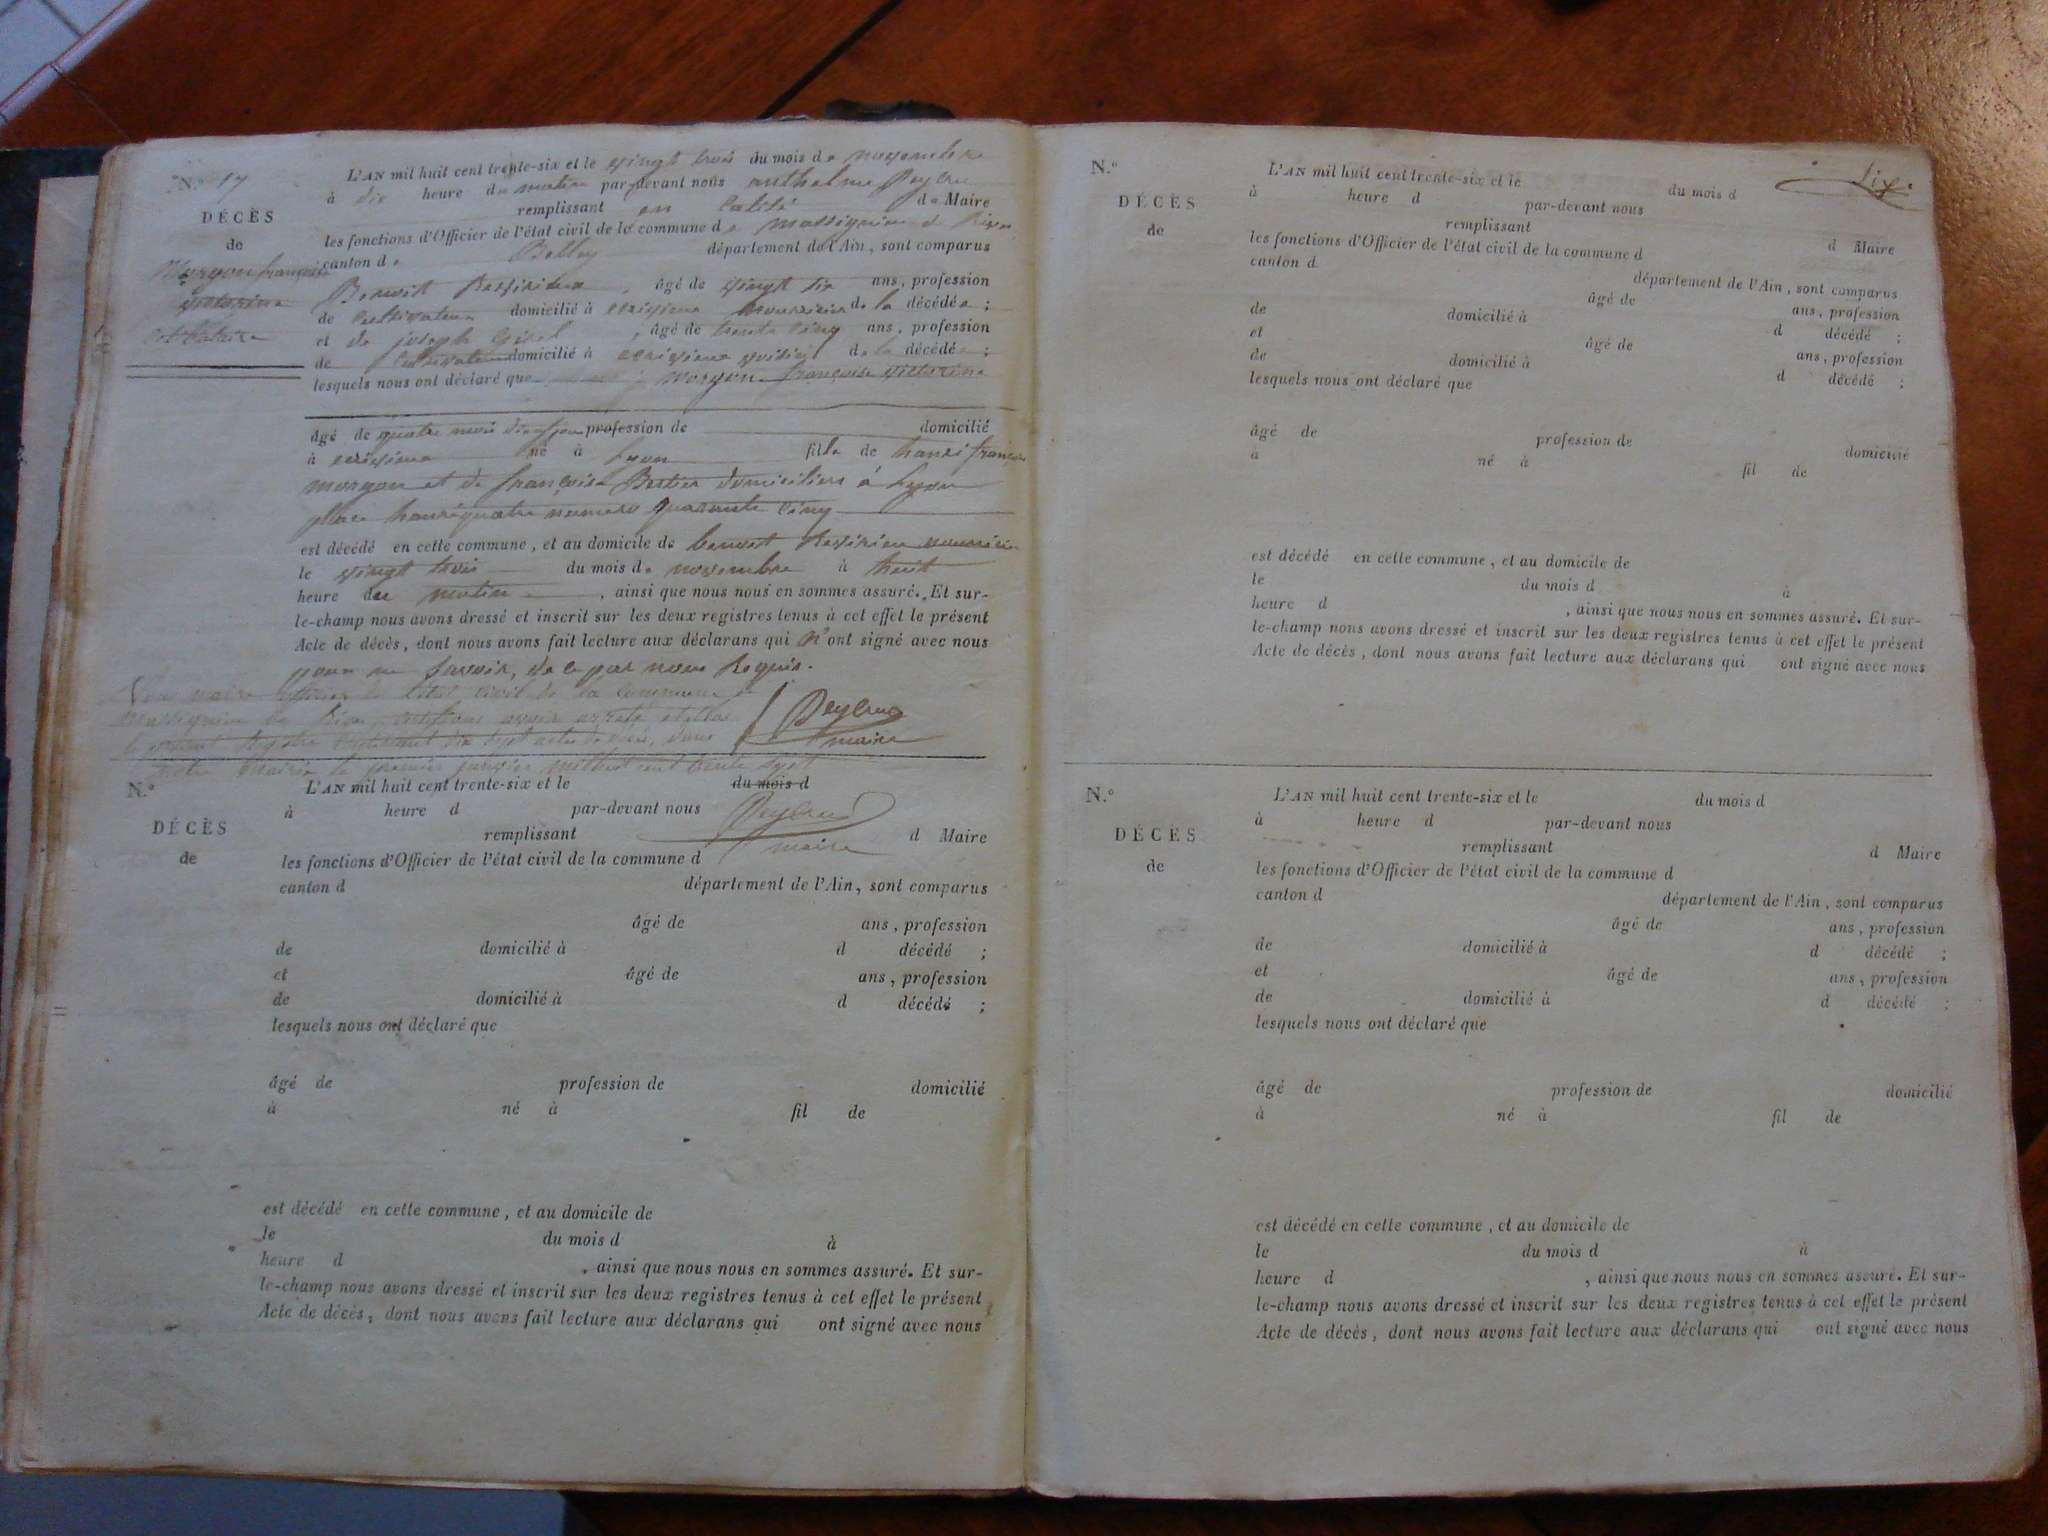 N.° 17
L'AN mil huit cent trente-six et le vingt trois du mois de novembre
à dix heure du matin par-devant nous anthelme Peyrud
DÉCÈS
remplissant en Calité de Maire
de
les fonctions d'Officier de l'état civil de la commune de Massignieu de Rives
canton de Belley département de l'Ain, sont comparus
Morgon françoise
victorine
Benoit âgé de vingt six ans, profession
de Cultivateur domicilié à nourricier de la décédée ;
et de joseph âgé de trente Cinq ans, profession
Celibataire
de Cultivateur domicilié à voisin de la décédée ;
lesquels nous ont déclaré que morgon françoise victorine
âgé de quatre mois profession de domicilié
à né à Lyon fille de henri françois
morgon et de françoise Bertier domiciliers à Lyon
place henriquatre numero quarante Cinq
est décédé en cette commune, et au domicile de benoit nourricier
le vingt trois du mois de novembre à huit
heure du matin, ainsi que nous nous en sommes assuré. Et sur-
le-champ nous avons dressé et inscrit sur les deux registres tenus à cet effet le présent
Acte de décès, dont nous avons fait lecture aux déclarans qui n'ont signé avec nous
pour ne Savoir, de ce par nous Requis.
Nous maire officier de l'état civil de la Commune de
Massignieu de Rives, certifions avoir arreté et clos
le présent Registre contenant dix sept actes de décès, dans
notre Mairie le premier janvier mil huit cent trente sept
Peyrud
maire
N.°
L'AN mil huit cent trente-six et le du mois d
à heure d par-devant nous Peyrud
DÉCÈS
remplissant d Maire
maire
de
les fonctions d'Officier de l'état civil de la commune d
canton d département de l'Ain, sont comparus
âgé de ans, profession
de domicilié à d décédé ;
et âgé de ans, profession
de domicilié à d décédé ;
lesquels nous ont déclaré que
âgé de profession de domicilié
à né à fil de
est décédé en cette commune, et au domicile de
le du mois d à
heure d , ainsi que nous nous en sommes assuré. Et sur-
le-champ nous avons dressé et inscrit sur les deux registres tenus à cet effet le présent
Acte de décès, dont nous avons fait lecture aux déclarans qui ont signé avec nous
N.°
L'AN mil huit cent trente-six et le du mois d
Six.
à heure d par-devant nous
DÉCÈS
remplissant d Maire
de
les fonctions d'Officier de l'état civil de la commune d
canton d département de l'Ain, sont comparus
âgé de ans, profession
de domicilié à d décédé ;
et âgé de ans, profession
de domicilié à d décédé ;
lesquels nous ont déclaré que
âgé de profession de domicilié
à né à fil de
est décédé en cette commune, et au domicile de
le du mois d à
heure d , ainsi que nous nous en sommes assuré. Et sur-
le-champ nous avons dressé et inscrit sur les deux registres tenus à cet effet le présent
Acte de décès, dont nous avons fait lecture aux déclarans qui ont signé avec nous
N.°
L'AN mil huit cent trente-six et le du mois d
à heure d par-devant nous
DÉCÈS
remplissant d Maire
de
les fonctions d'Officier de l'état civil de la commune d
canton d département de l'Ain, sont comparus
âgé de ans, profession
de domicilié à d décédé ;
et âgé de ans, profession
de domicilié à d décédé ;
lesquels nous ont déclaré que
âgé de profession de domicilié
à né à fil de
est décédé en cette commune, et au domicile de
le du mois d à
heure d , ainsi que nous nous en sommes assuré. Et sur-
le-champ nous avons dressé et inscrit sur les deux registres tenus à cet effet le présent
Acte de décès, dont nous avons fait lecture aux déclarans qui ont signé avec nous